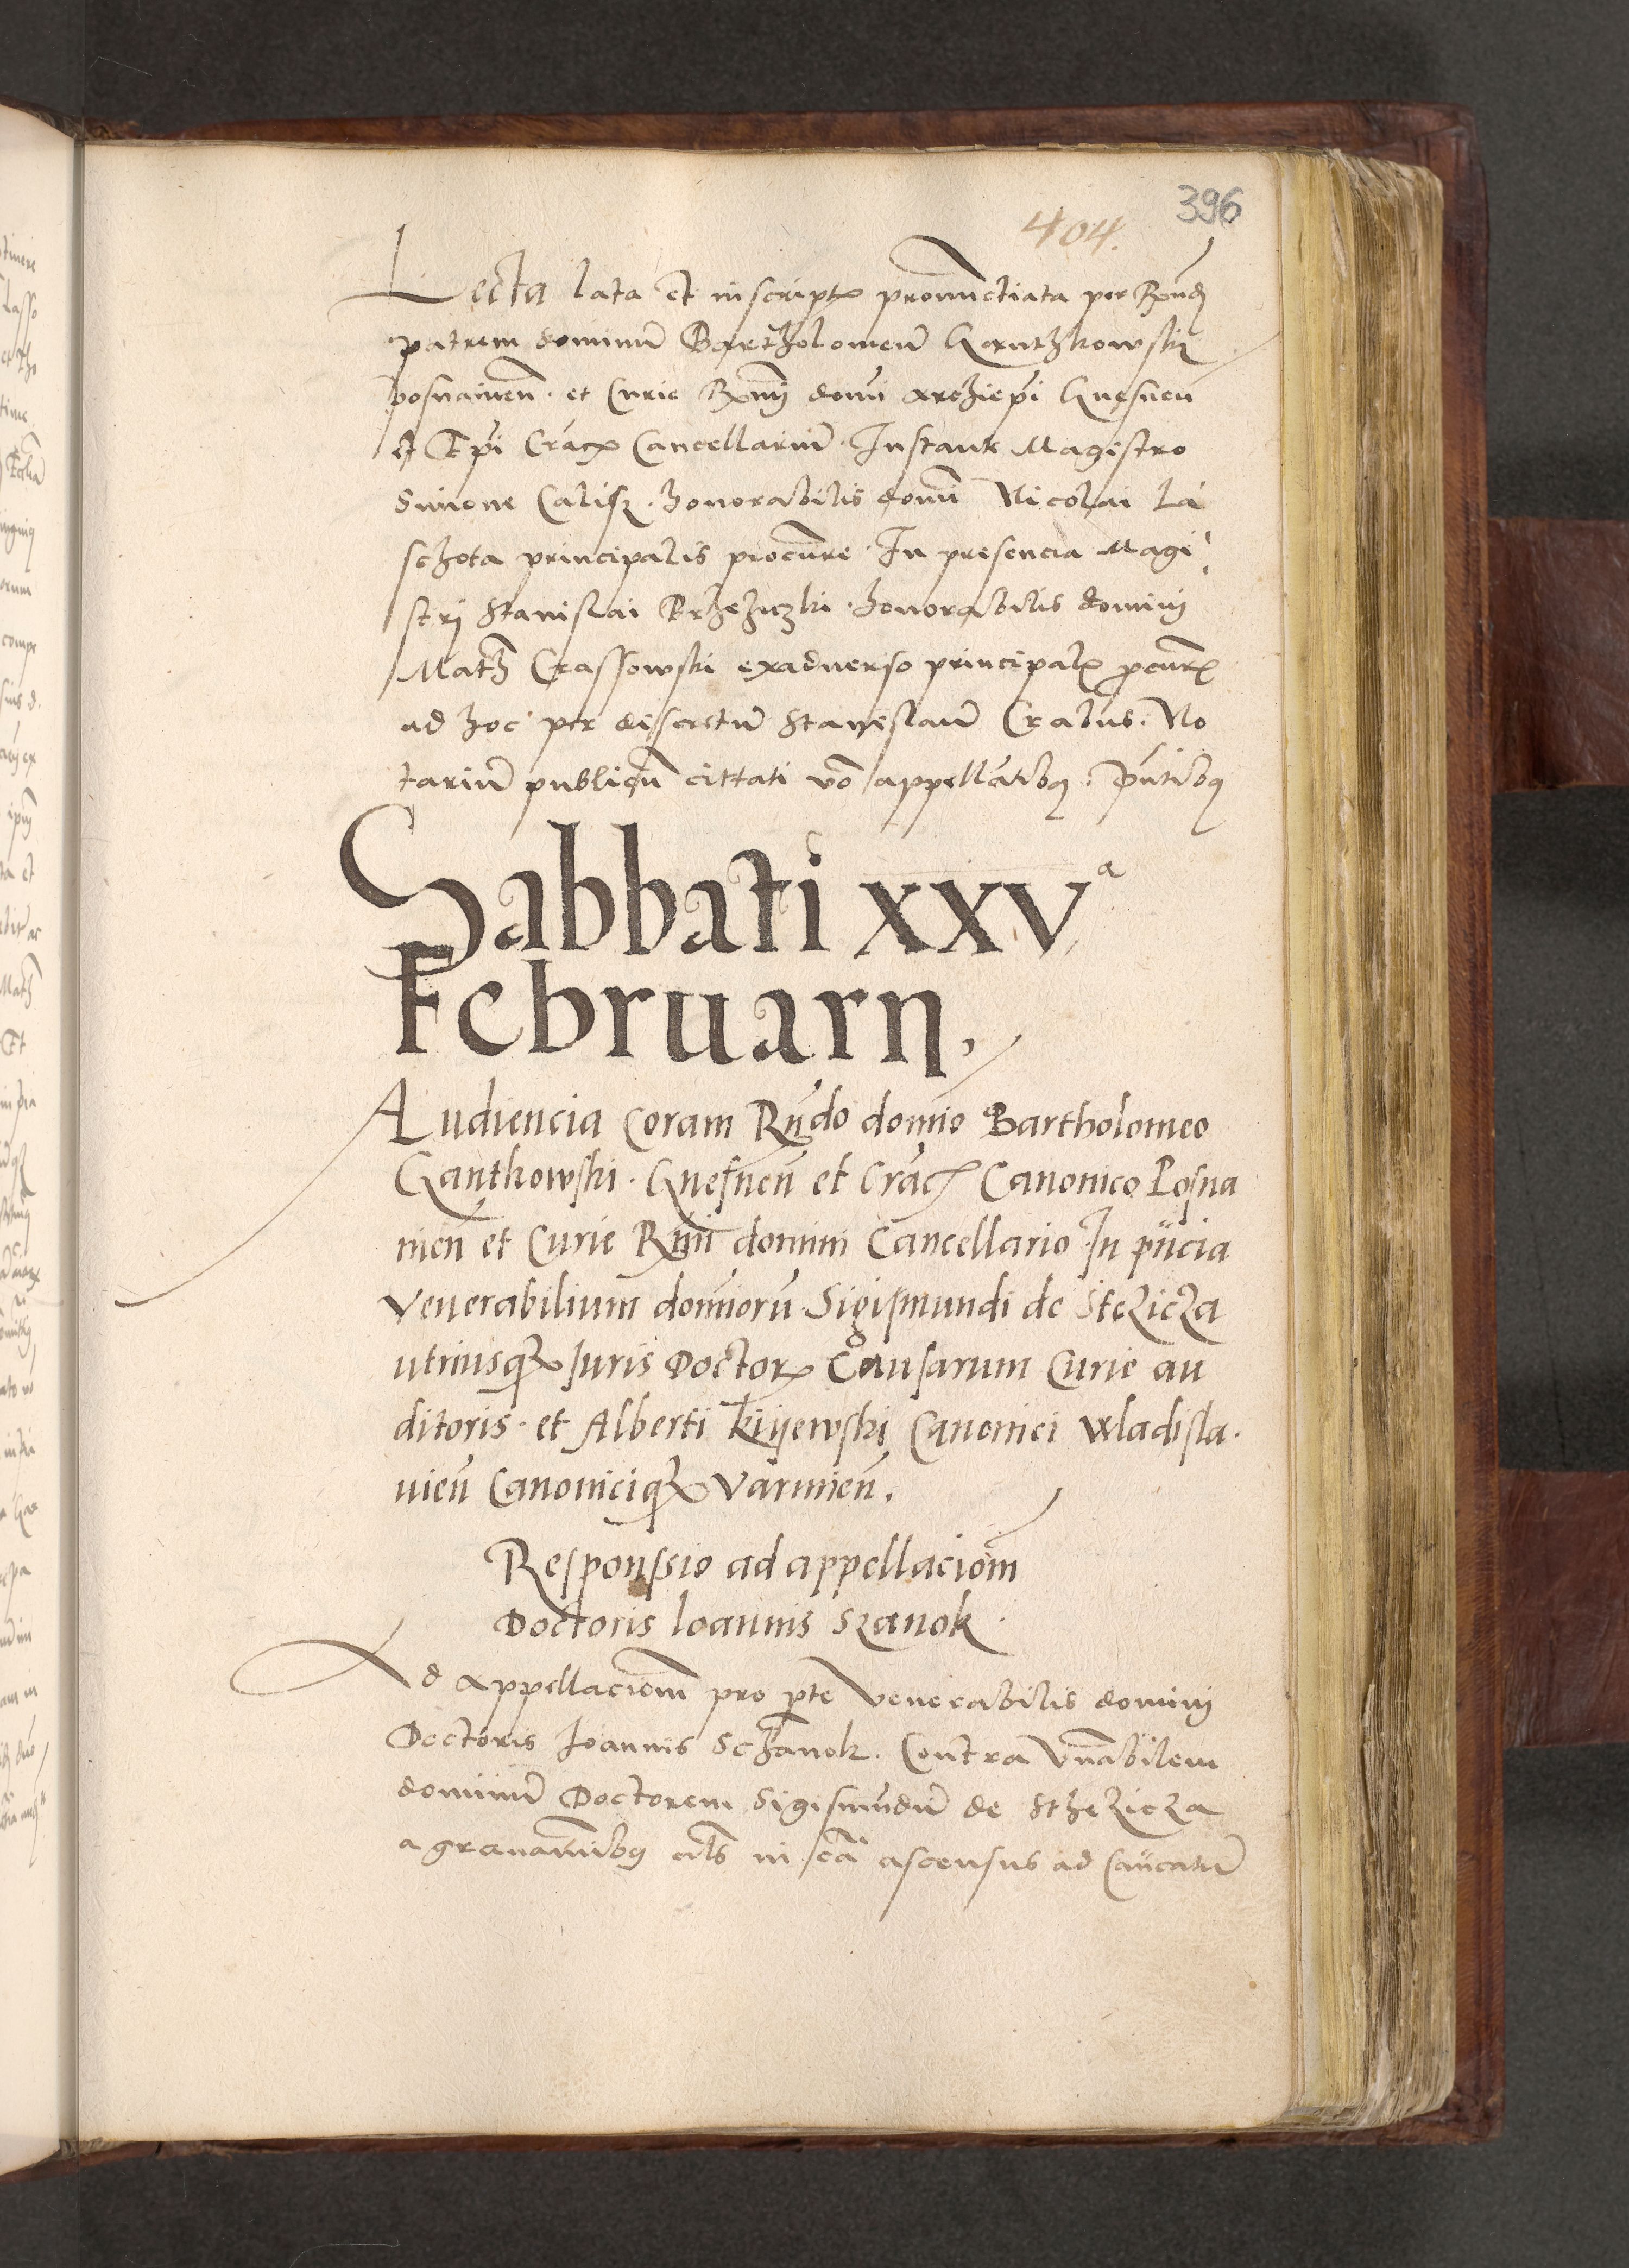 396
404.
Lecta lata et in scriptis pronunctiata per Rxnd
patrem dominū Bartholomeū Ganthkowski
posnanien̄. et Curie Rxmi domi archiepi Gnesnen̄
et Epi Crac̄ Cancellariū. Instante Magistro
Simone Calisz. honorabilis domi Nicolai La
schota principalis procure. In presencia Magi
strij Stanislai Brzeziczki. honorabilis dominij
Mathȝ Crassowski exaduerso principalis procuris
ad hoc per discretū Stanislaū Cralus. No
tariū publicū cittati vō appellātibꝫ. Pn̄tibꝫ
Sabbati xxvᵃ
Februarij,
Audiencia coram Rn̄do domīo Bartholomeo
Ganthowski. Gnesnen̄ et Crac̄ Canonico Posna
nien̄ et Curie Rx̄mi domini Cancellario. In pn̄cia
venerabilium domīorū Sigismundi de Stezicza
utriusqꝫ Iuris Doctoris Causarum Curie au
ditoris. et Alberti Kijewski Canonici Wladisla.
uien̄ Canonicique Varmien̄.
Responssio ad appellaciom̄
Doctoris Ioannis Szanok.
Ad appellaciom̄ pro pte Venerabilis dominij
Doctoris Ioannis Schanok. Contra Vnābilem
dominū Doctorem Sigismūdū de Sthezicza
a grauamībꝫ eīls in cā ascensus ad Caūcatū